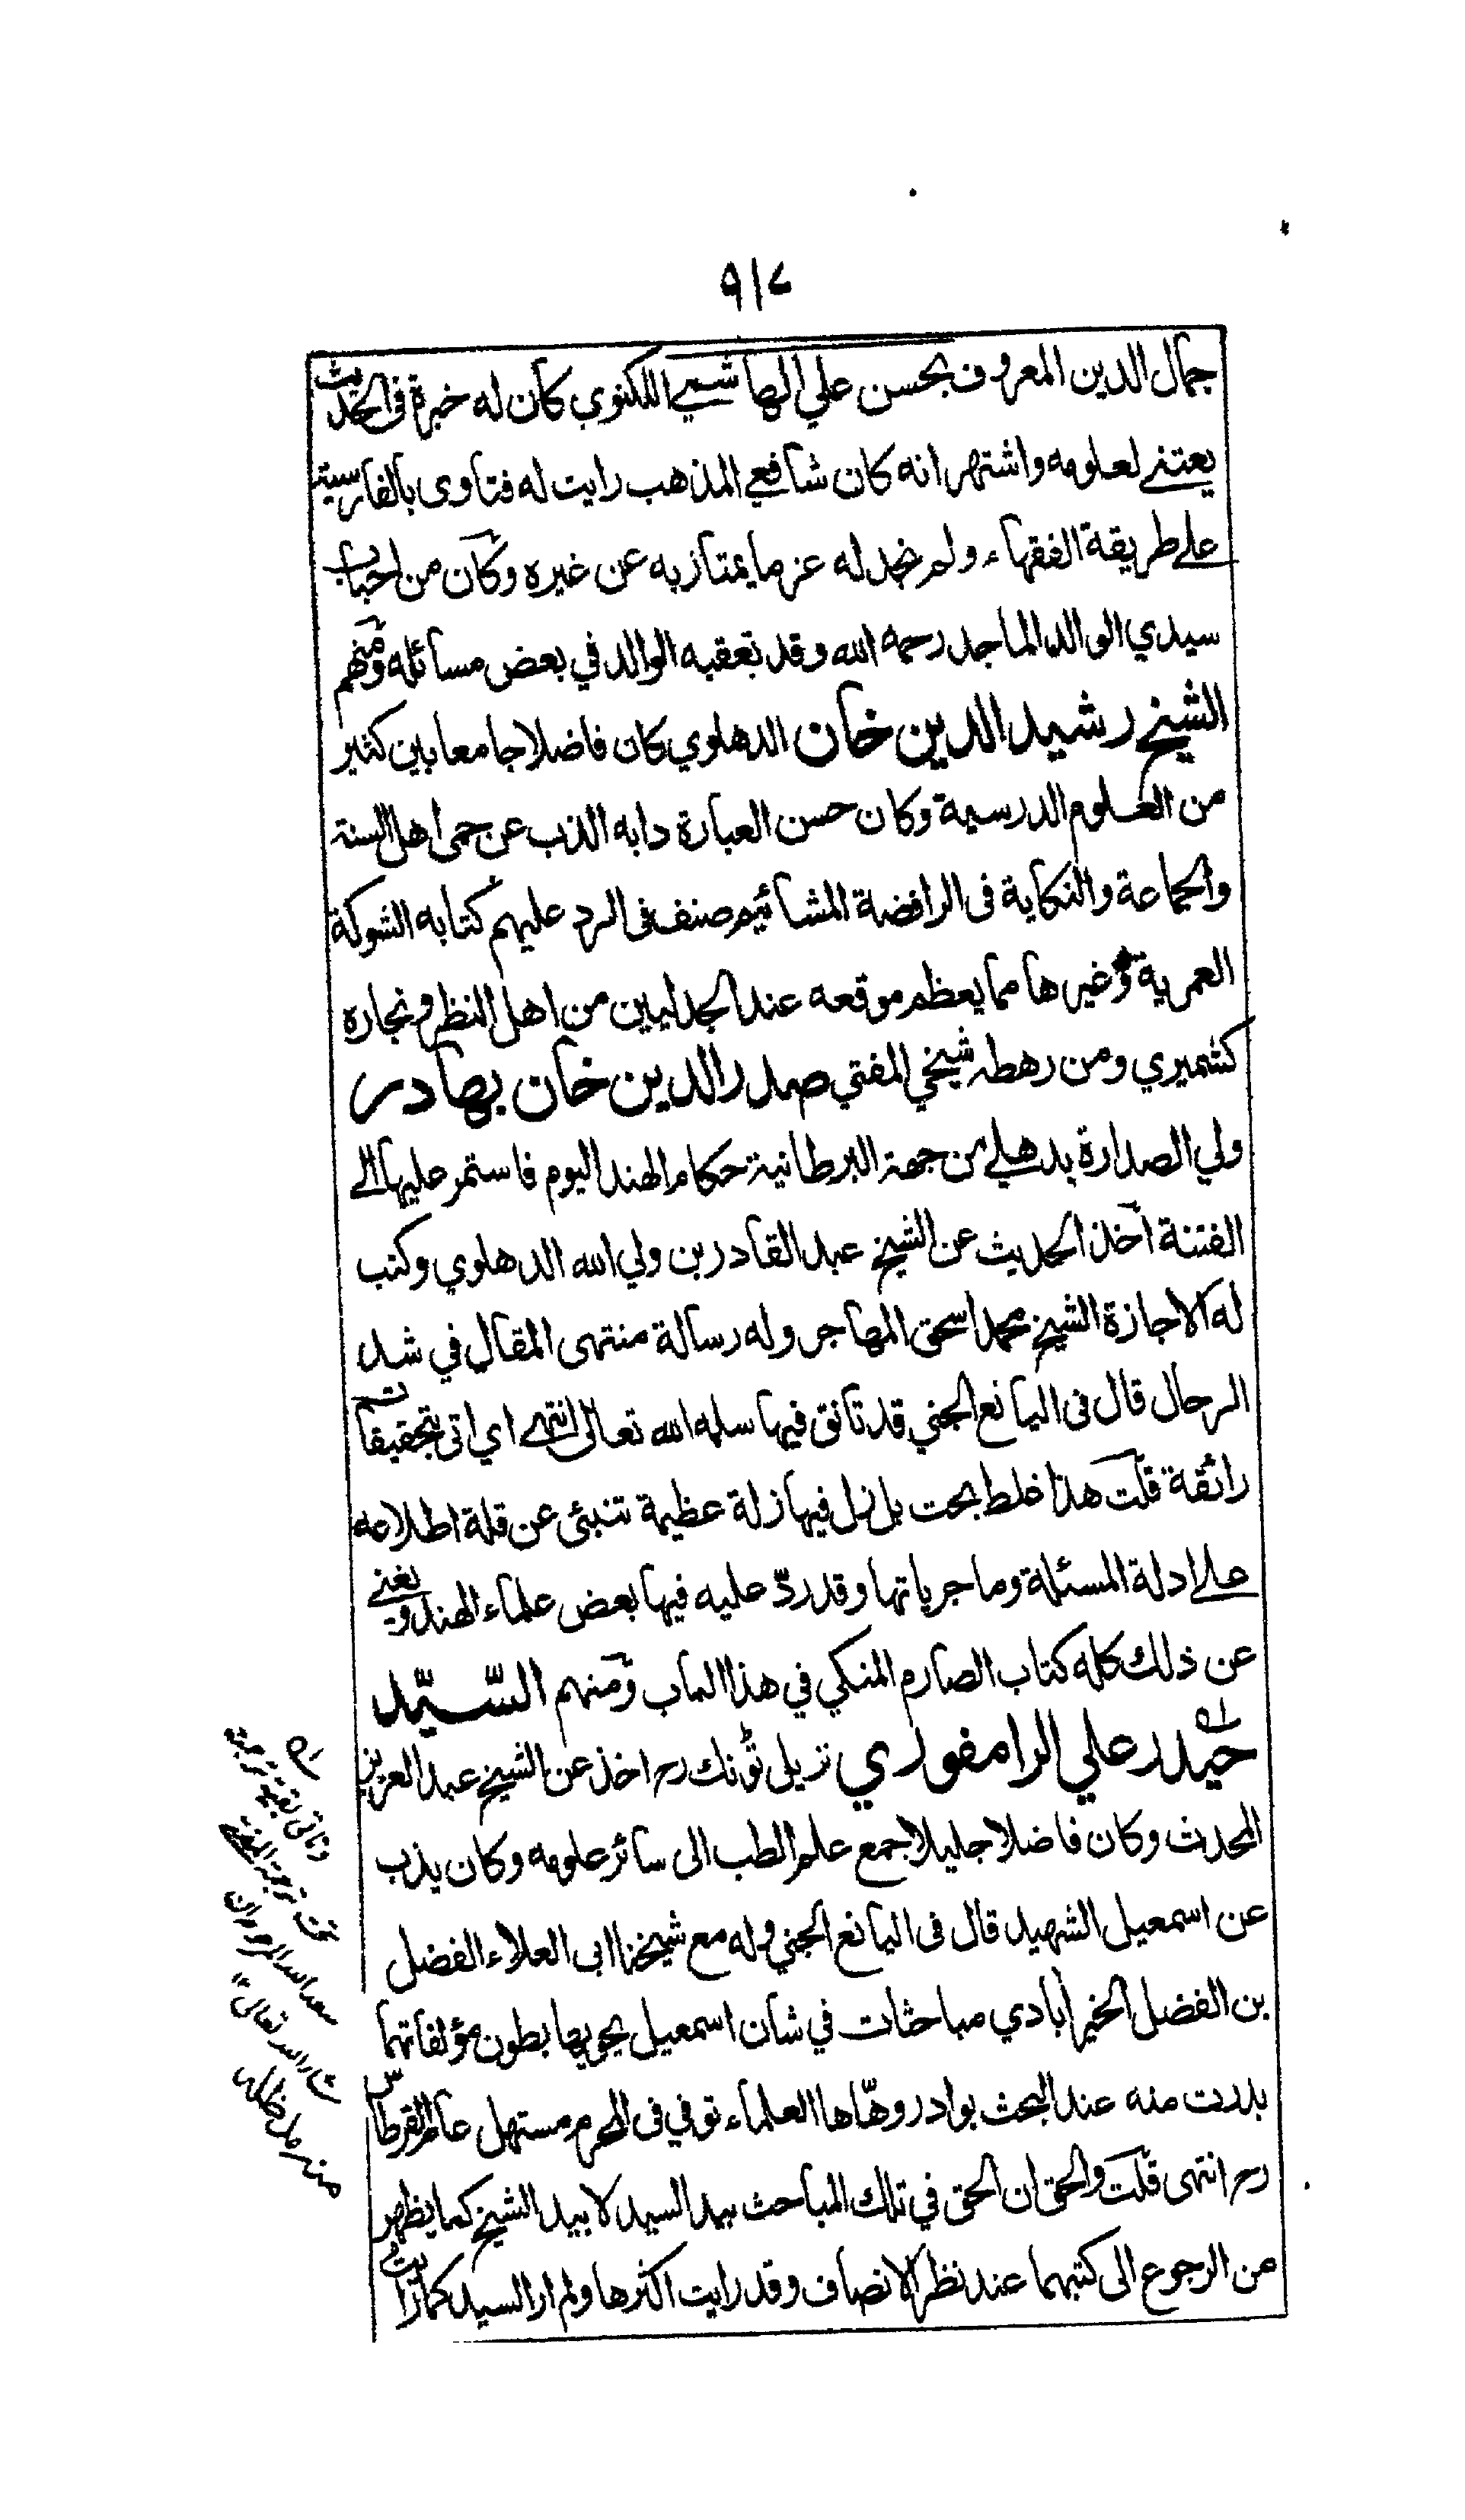 ٩١٧
جمال الدين المعروف بحسن علي الهاشمي اللكنوي كان له خبرة فى الحديث
يعتنى لعلومه واشتهر انه كان شافعي المذهب رايت له فتاوى بالفارسية
على طريقة الفقهاء ولم نجد له عز ما يمتاز به عن غيره وكان من احباب
سيدي الوالد الماجد رحمه الله وقد تعقبه الوالد في بعض مسائله ومنهم
الشيخ رشيد الدين خان الدهلوي كان فاضلا جامعا بين كثير
من العلوم الدرسية وكان حسن العبارة دابه الذب عن حمى اهل السنة
والجماعة والنكاية فى الرافضة المشائيم صنف فى الرد عليهم كتابه الشوكة
العمرية وغيرها مما يعظم موقعه عند الجدليين من اهل النظر ونجاره
كشميري ومن رهطه شيخي المفتي صدر الدين خان بهادر
ولي الصدارة بدهلي من جهة البرطانية حكام الهند اليوم فاستمر عليها الى
الفتنة آخذ الحديث عن الشيخ عبد القادر بن ولي الله الدهلوي وكتب
له الاجازة الشيخ محمد اسحق المهاجر وله رسالة منتهى المقال في شد
الرحال قال فى اليانع الجني قد تانق فيها سلمه الله تعالى انتهى اي اتى بتحقيقات
رائقة قلت هذا خلط بحت بل زل فيها زلة عظيمة تنبئ عن قلة اطلاعه
على ادلة المسئلة وما جرياتها وقد ردّ عليه فيها بعض علماء الهند ويغني
عن ذلك كله كتاب الصارم المنكي في هذا الباب ومنهم السّيّد
حيدر علي الرامفوري نزيل ٹونك رح اخذ عن الشيخ عبد العزيز
المحدث وكان فاضلا جليلا جمع علم الطب الى سائر علومه وكان يذب
عن اسمعيل الشهيد قال فى اليانع الجني وله مع شيخنا ابى العلاء الفضل
بن الفضل الخيرآبادي مباحثات في شان اسمعيل يحويها بطون مؤلفاتهما
بدرت منه عند البحث بوادر وهّاها العلماء توفي فى المحرم مستهل عام القرطاس
رح انتهى قلت والحق ان الحق في تلك المباحث بيد السيد لا بيد الشيخ كما يظهر
من الرجوع الى كتبهما عند نظر الانصاف وقد رايت اكثرها ولم ار السيد كما رايت